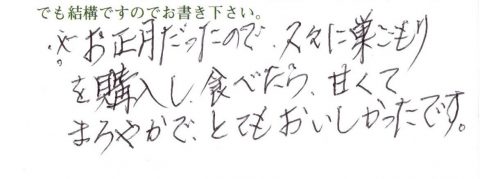 でも結構ですのでお書き下さい。
お正月だったので、久々に巣ごもり
を購入し、食べたら、甘くて
まろやかで、とてもおいしかったです。